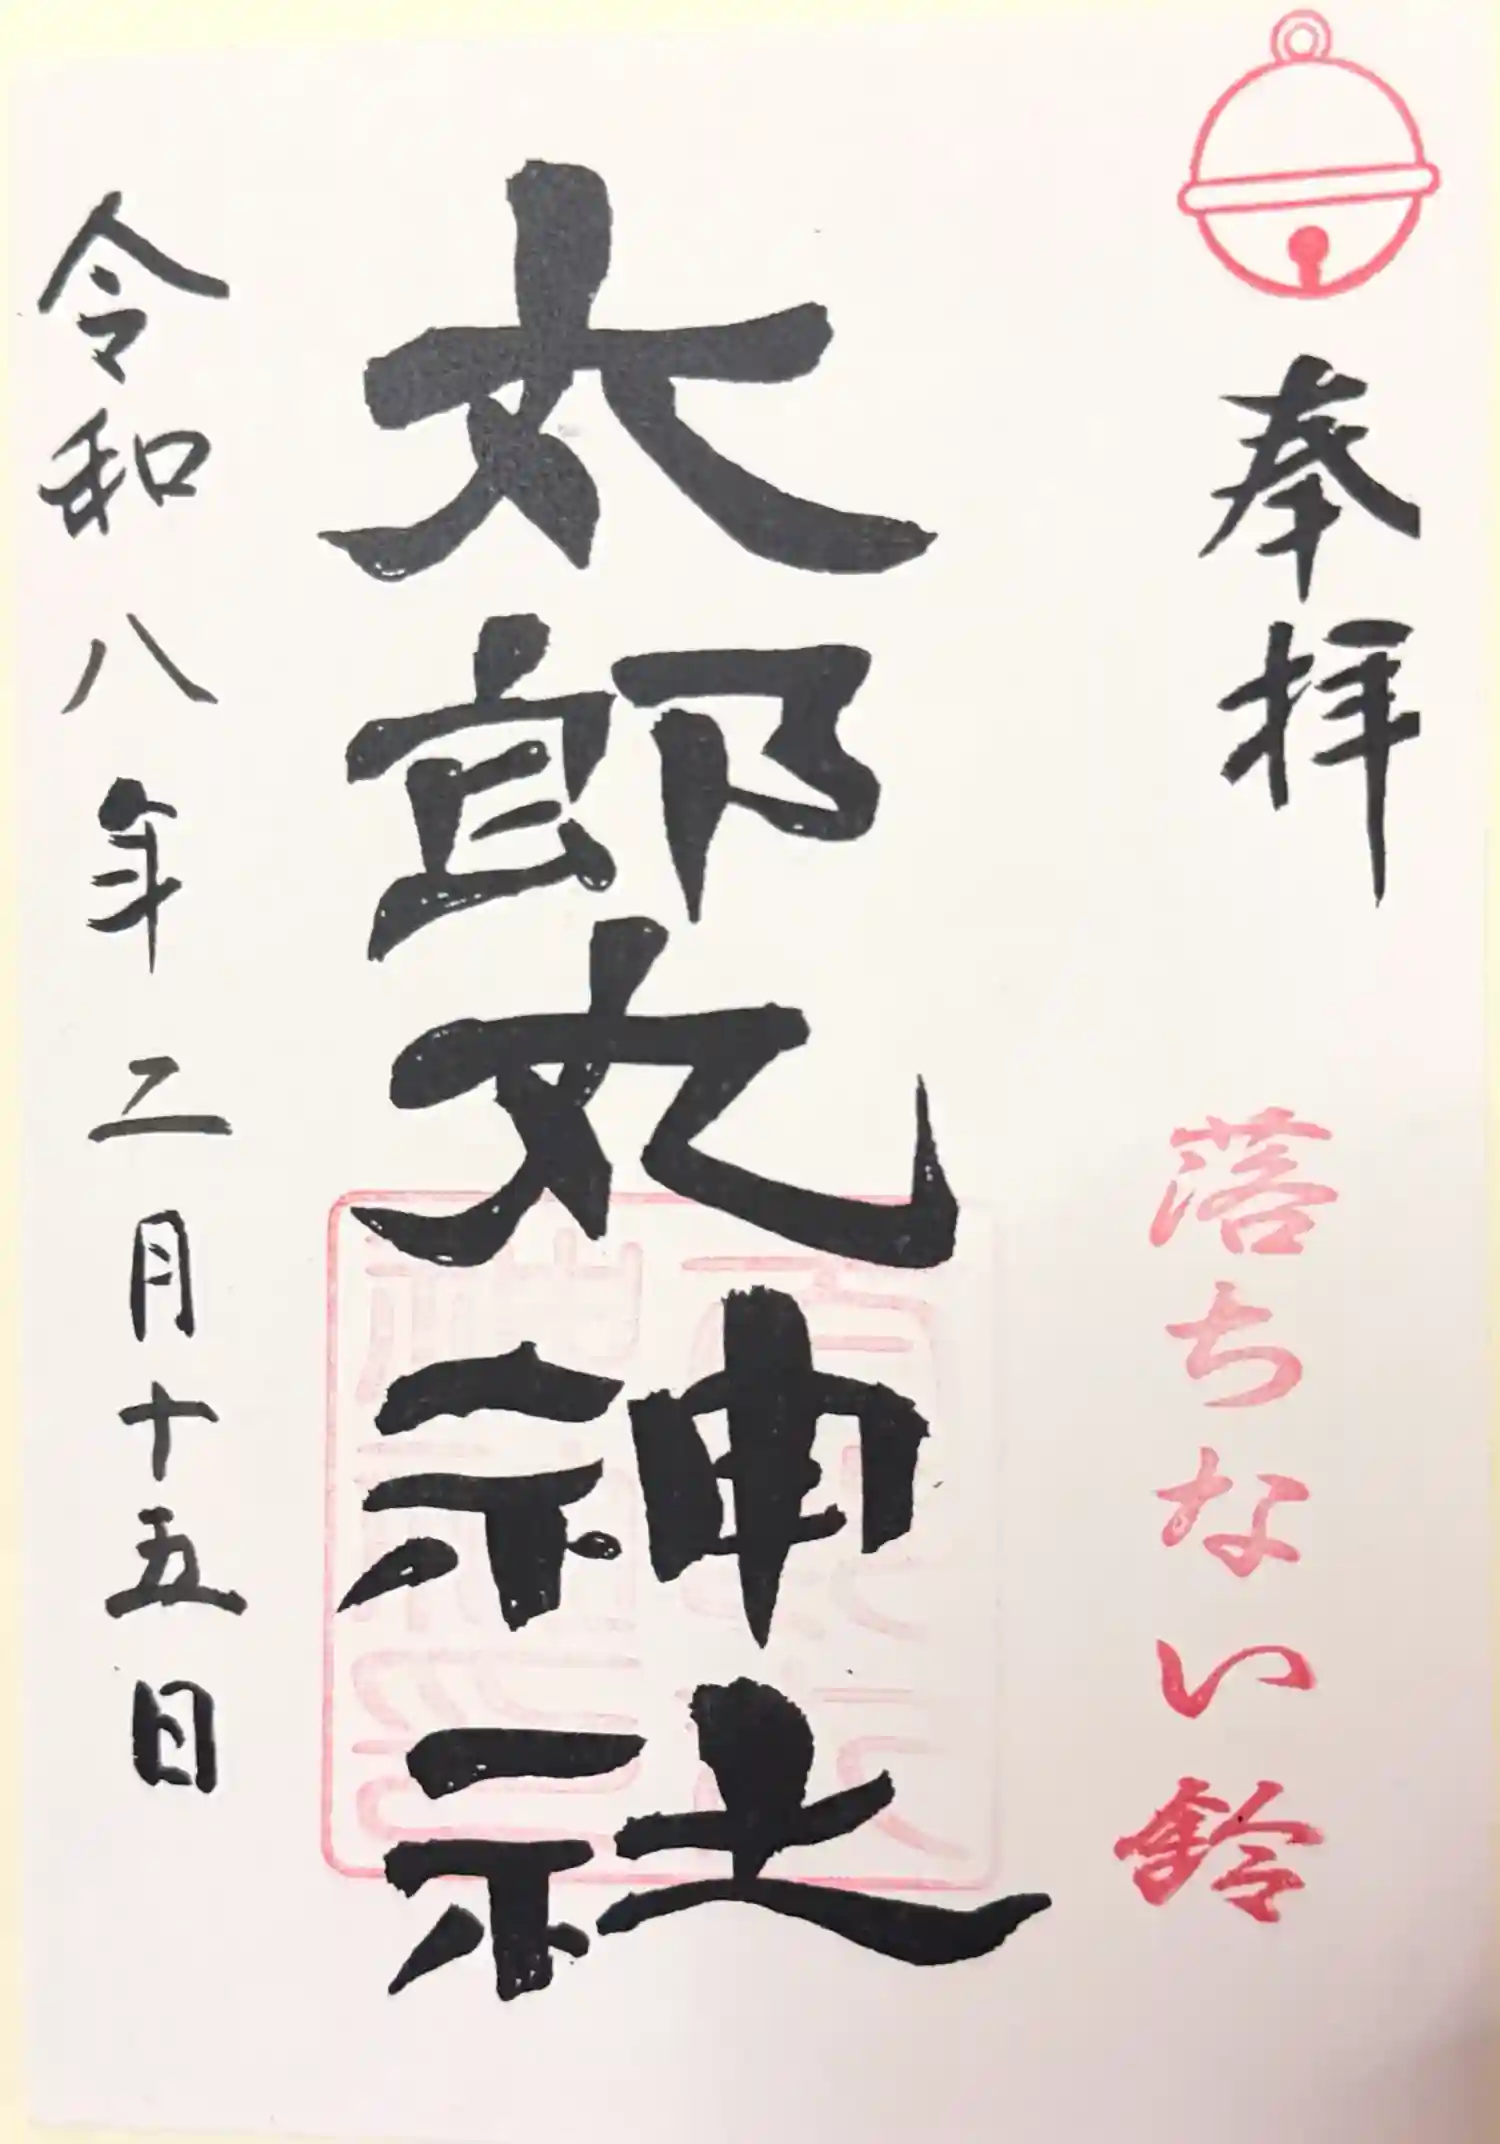 奉拝
落ちない鈴
太郎丸神社
令和八年二月十五日